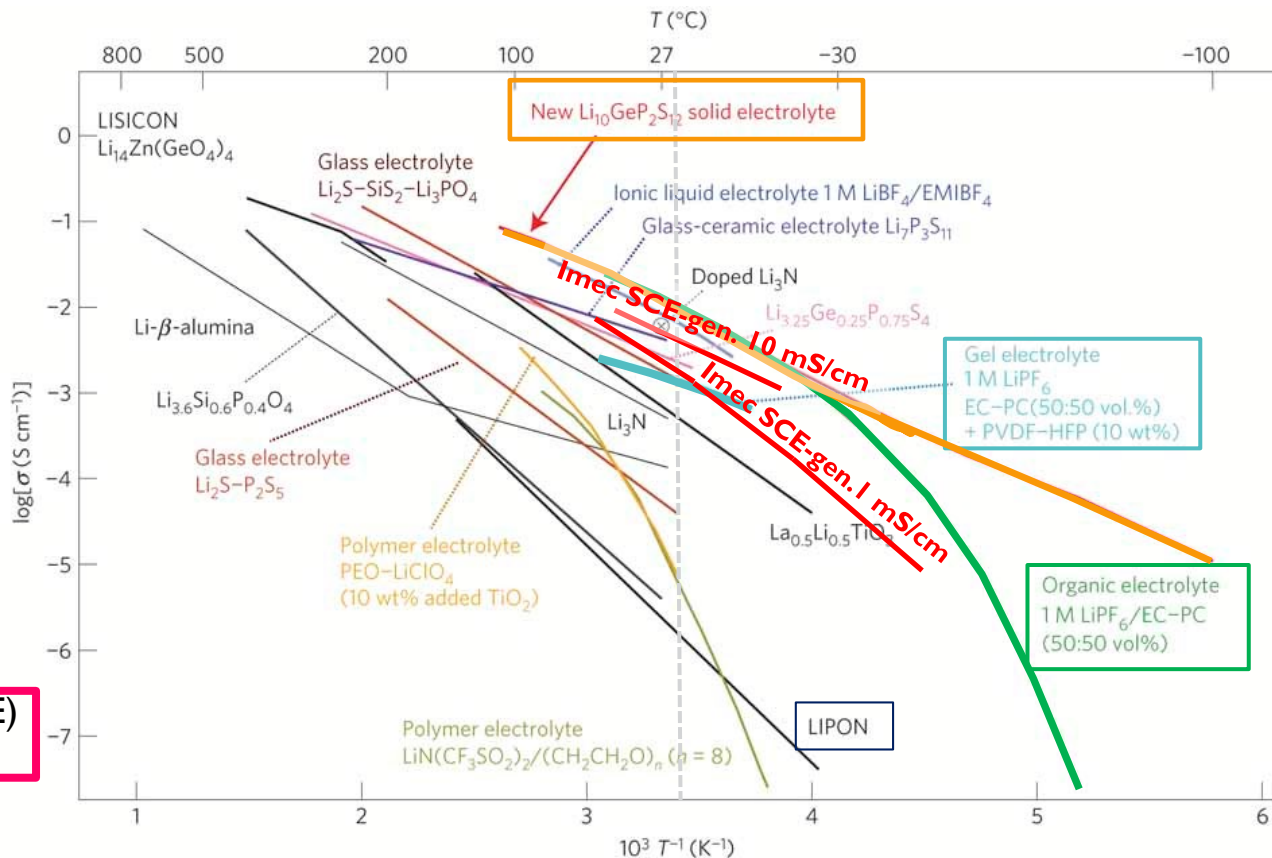 T (°C)
800 500 200 100 27 −30 −100
0
−1
−2
−3
−4
−5
−6
−7
log[σ (S cm⁻¹)]
LISICON
Li₁₄Zn(GeO₄)₄
New Li₁₀GeP₂S₁₂ solid electrolyte
Glass electrolyte
Li₂S–SiS₂–Li₃PO₄
Ionic liquid electrolyte 1 M LiBF₄/EMIBF₄
Glass-ceramic electrolyte Li₇P₃S₁₁
Doped Li₃N
Li₃.₂₅Ge₀.₂₅P₀.₇₅S₄
Imec SCE-gen. 10 mS/cm
Imec SCE-gen.1 mS/cm
Gel electrolyte
1 M LiPF₆
EC–PC(50:50 vol.%)
+ PVDF–HFP (10 wt%)
Li-β-alumina
Li₃.₆Si₀.₆P₀.₄O₄
Li₃N
Glass electrolyte
Li₂S–P₂S₅
La₀.₅Li₀.₅TiO₃
Polymer electrolyte
PEO–LiClO₄
(10 wt% added TiO₂)
Organic electrolyte
1 M LiPF₆/EC–PC
(50:50 vol%)
E)
LIPON
Polymer electrolyte
LiN(CF₃SO₂)₂/(CH₂CH₂O)ₙ (n = 8)
1 2 3 4 5 6
10³ T⁻¹ (K⁻¹)